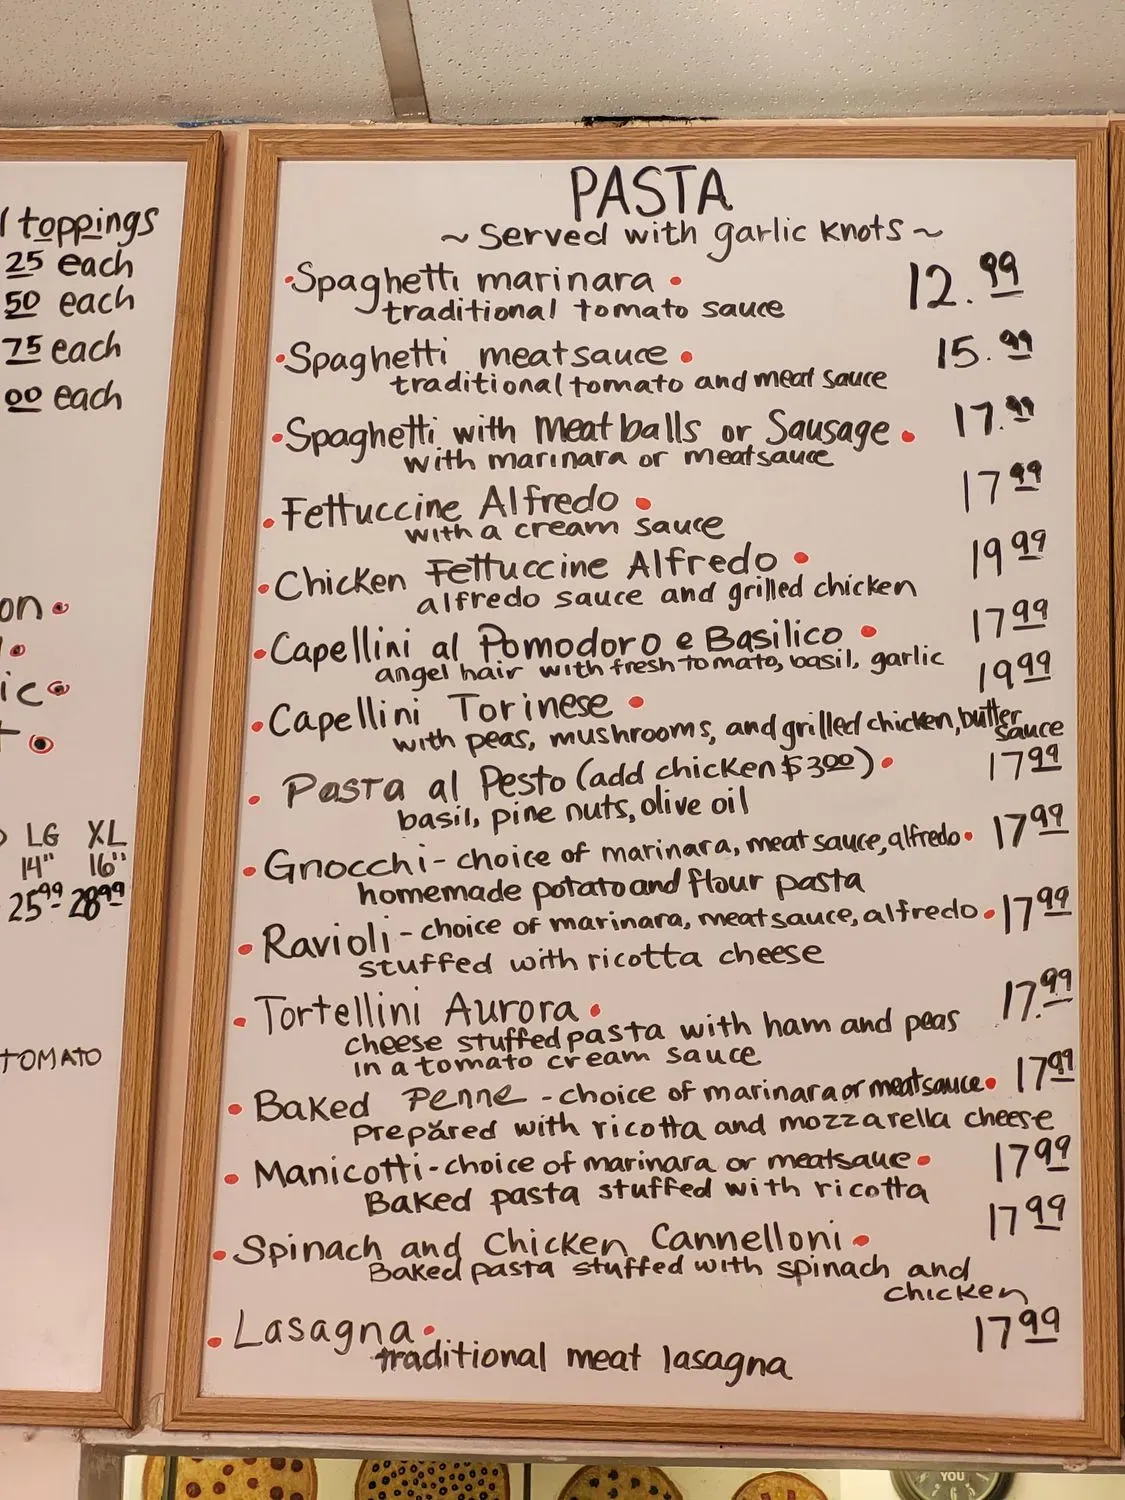 toppings
25 each
50 each
75 each
00 each
on
ic
LG XL
14" 16"
25.99 28.99
TOMATO
PASTA
~ Served with garlic knots ~
• Spaghetti marinara • 12.99
traditional tomato sauce
• Spaghetti meatsauce • 15.99
traditional tomato and meat sauce
• Spaghetti with Meatballs or Sausage • 17.99
with marinara or meatsauce
• Fettuccine Alfredo • 17.99
with a cream sauce
• Chicken Fettuccine Alfredo • 19.99
alfredo sauce and grilled chicken
• Capellini al Pomodoro e Basilico • 17.99
angel hair with fresh tomato, basil, garlic
• Capellini Torinese • 19.99
with peas, mushrooms, and grilled chicken, butter
sauce
• Pasta al Pesto (add chicken $3.00) • 17.99
basil, pine nuts, olive oil
• Gnocchi - choice of marinara, meat sauce, alfredo • 17.99
homemade potato and flour pasta
• Ravioli - choice of marinara, meatsauce, alfredo • 17.99
stuffed with ricotta cheese
• Tortellini Aurora • 17.99
cheese stuffed pasta with ham and peas
in a tomato cream sauce
• Baked Penne - choice of marinara or meatsauce • 17.99
prepared with ricotta and mozzarella cheese
• Manicotti - choice of marinara or meatsaue • 17.99
Baked pasta stuffed with ricotta
• Spinach and Chicken Cannelloni • 17.99
Baked pasta stuffed with spinach and
chicken
• Lasagna • 17.99
traditional meat lasagna
YOU
6